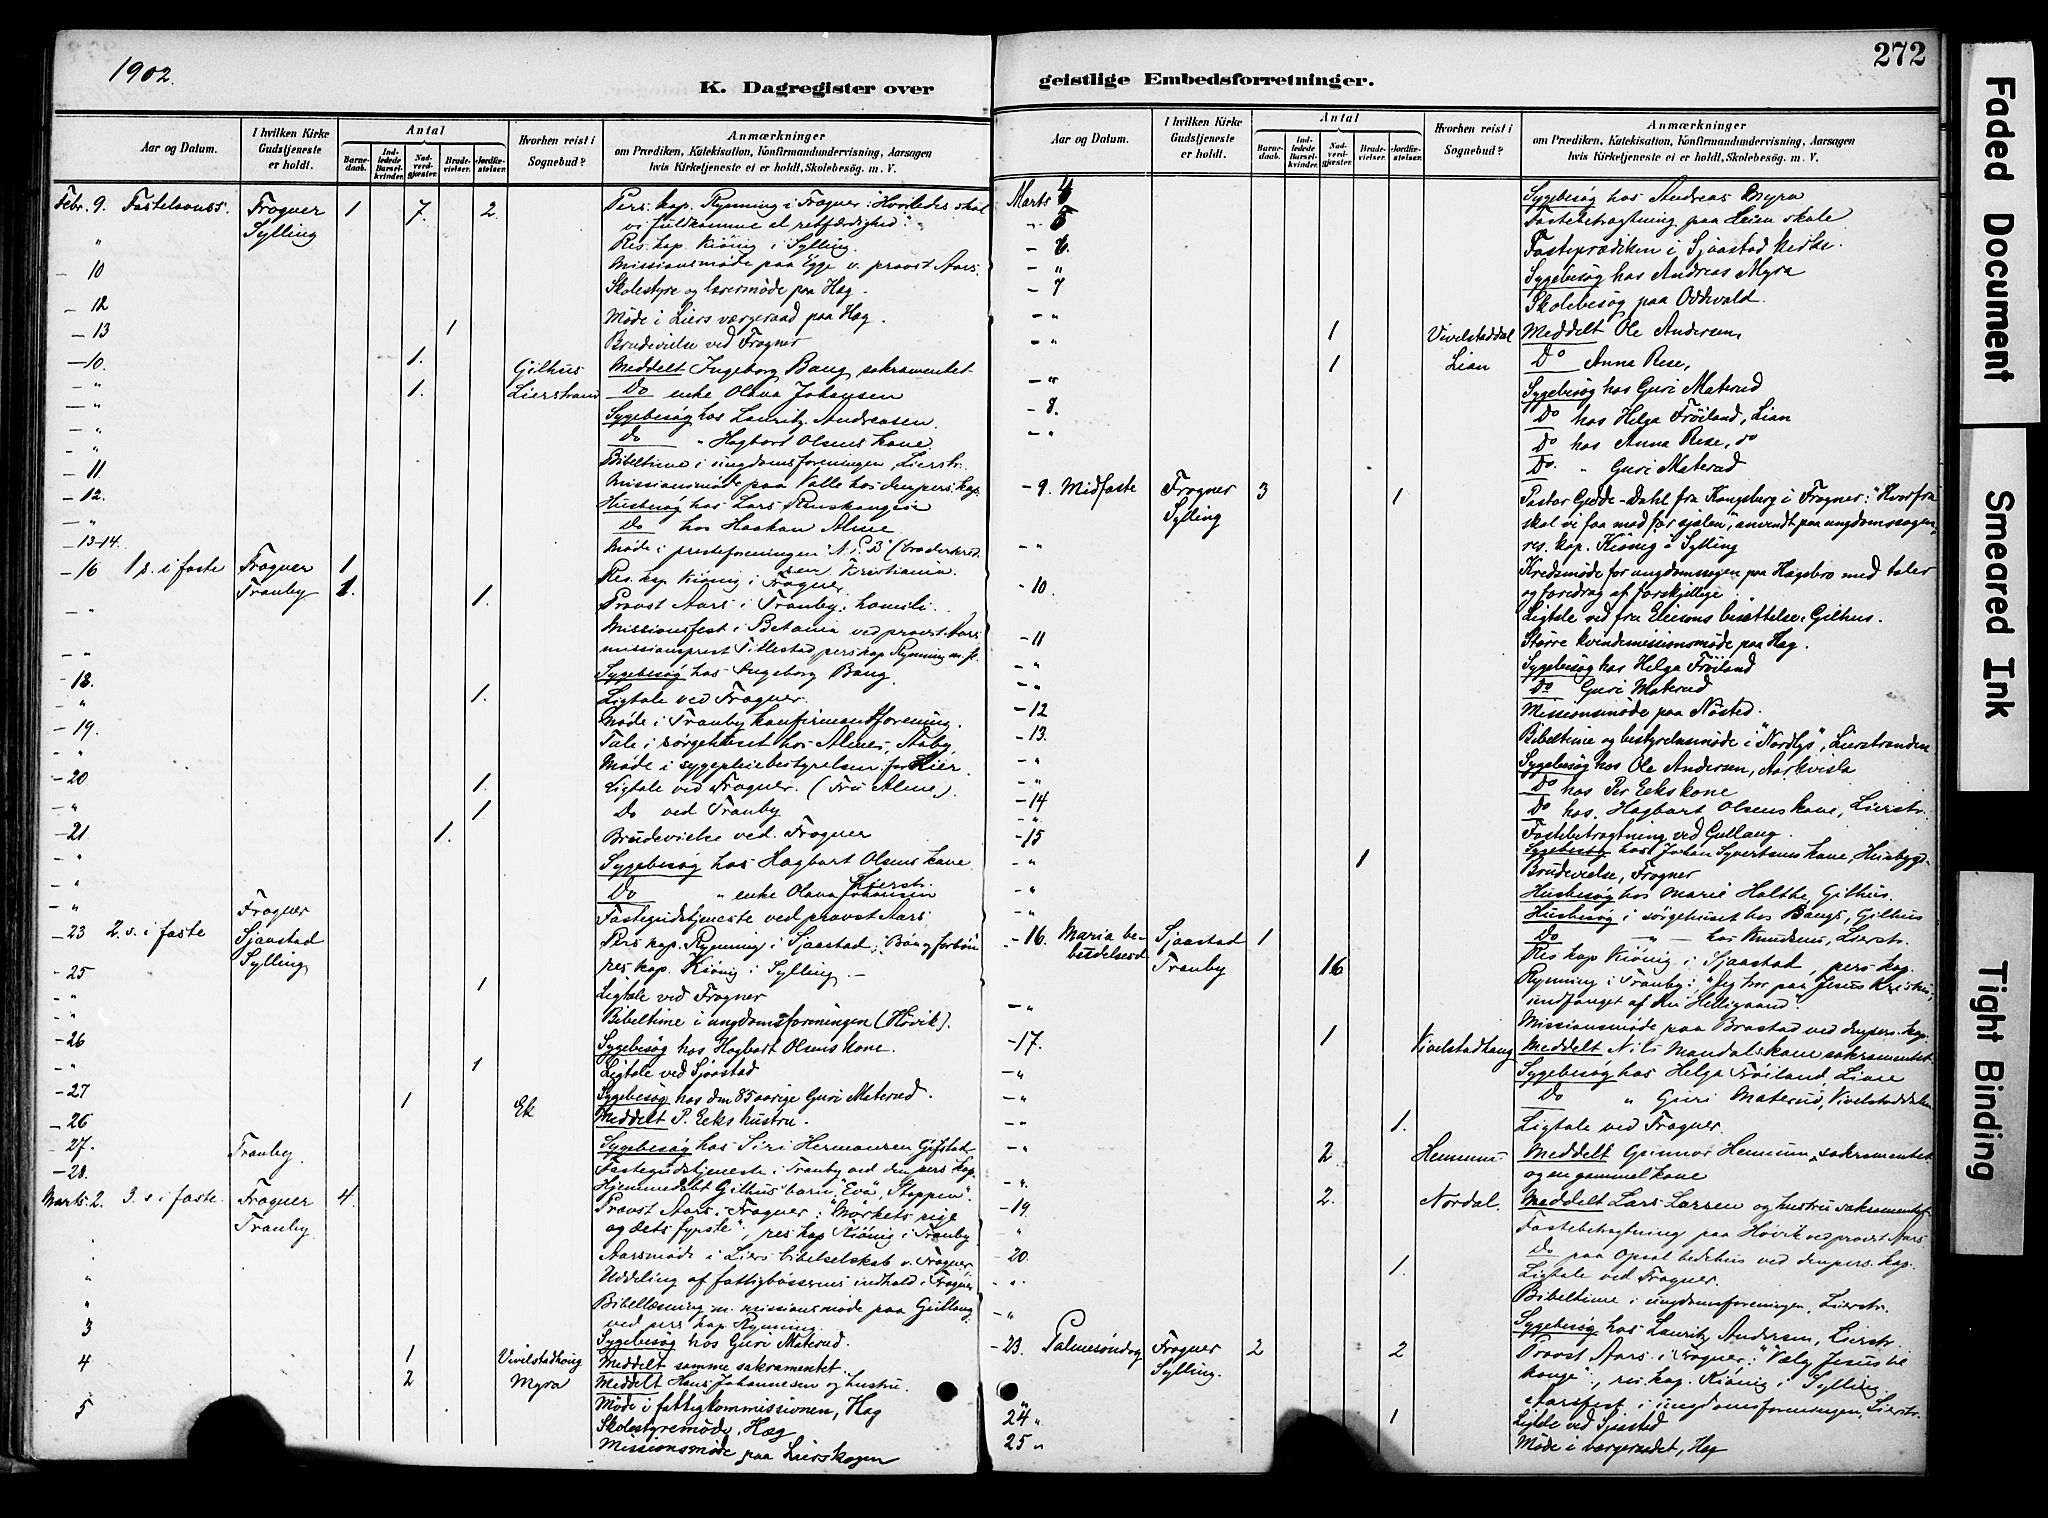 1902.
K. Dagregister over
Aar og Datum.
I hvilken Kirke Gudstjeneste er holdt.
Antal
Barnedaab.
Indledede Barselkvinder.
Nadverdgjester.
Brudevielser.
Jordfæstelser.
Hvorhen reist i Sognebud?
Anmærkninger
om Prædiken, Katekisation, Konfirmandundervisning, Aarsagen
hvis Kirketjeneste ei er holdt, Skolebesøg. m. V.
Febr. 9. Fastelavnss. Frogner 1 7. 2. Pers. kap. Rynning i Frogner: Hvorledes skal
Sylling vi fuldkomme al retfærdighed".
" Res. kap. Kiönig i Sylling.
- 10 Missionsmöde paa Egge v. provst Aars.
Skolestyre og lærermöde paa Hæg.
- 12 Möde i Liers værgeraad paa Hæg.
- 13 1 Brudevielse ved Frogner
- 10. 1. Gilhus Meddelt Ingeborg Bang sakramentet
- " 1. Lierstrand Do enke Olava Johansen
- " Sygebesög hos Lauritz Andreasen.
- " Do " Hagbart Olsens kone
- 11 Bibeltime i ungdomsforeningen, Lierstr.
- 12. Missionsmöde paa Valle hos den pers. kap.
Husbesög hos Lars
- " Do hos Haakan Alme.
- 13-14. Möde i presteforeningen
- 16 1 s. i faste Frogner 1 Res. kap. Kiönig i Frogner
Tranby 1. 1. Provst Aars i Tranby:
- " Missionsfest i Betania ved provst Aars
- " missionsprest Titlestad, pers kap Rynning m. fl.
- 18. Sygebesög hos Ingeborg Bang.
- " 1. Ligtale ved Frogner.
- 19. Möde i Tranby konfirmandforening.
- " Tale i sörgehuset hos Almes,
Möde i sygepleiebestyrelsen for Lier.
- 20 1. Ligtale ved Frogner. (Fru Alme).
- " 1 Do ved Tranby
- 21 1. Brudevielse ved Frogner
- " Sygebesög hos Hagbart Olsens kone
- " Do " enke Olava Johansen Lierstr.
- " Frogner Fastegudstjeneste ved provst Aars
- 23 2. s. i faste Sjaastad Pers kap. Rynning i Sjaastad: "Bön og forbön
Sylling res kap. Kiönig i Sylling.
- 25 1 Ligtale ved Frogner
- " Bibeltime i ungdomsforeningen (Hövik).
- 26 Sygebesög hos Hagbart Olsens kone.
- " 1 Ligtale ved Sjaastad
- 27 Sygebesög hos den 85 aarige Guri Materud.
- 26 1 Ek Meddelt P. Eeks hustru.
- 27. Sygebesög hos Siri Hermansen Gifstad
- 28. Tranby Fastegudstjeneste i Tranby ved den pers kap.
Hjemmedöbt Gilhus' barn "Eva", Stoppen".
Marts 2. 3. s i faste. Frogner 4. Provst Aars i Frogner: "Mörkets rige
Tranby og dets fyrste", res kap Kiönig i Tranby
Aarsmöde i Liers bibelselskab v. Frogner,
" Uddeling af fattigbössernes indhold i Frogner
" Bibellæsning m. missionsmöde paa Gullaug
ved pers kap. Rynning.
3 Sygebesög hos Guri Materud.
4 1 Vivelstadhaug Meddelt samme sakramentet.
2 Myra Meddelt Hans Johannesen og hustru.
5 Möde i fattigkommissionen, Hæg
Skolestyremöde, Hæg
Missionsmöde paa Lierskogen
272
geistlige Embedsforretninger.
Aar og Datum.
I hvilken Kirke Gudstjeneste er holdt.
Antal
Barnedaab.
Indledede Barselkvinder.
Nadverdgjester.
Brudevielser.
Jordfæstelser.
Hvorhen reist i Sognebud?
Anmærkninger
om Prædiken, Katekisation, Konfirmandundervisning, Aarsagen
hvis Kirketjeneste ei er holdt, Skolebesøg. m. V.
Marts 4 Sygebesög hos Andreas Myra
- 5 Fastebetragtning paa Heien skole
- 6. Fasteprædiken i Sjaastad kirke.
- " Sygebesög hos Andreas Myra
- 7 Skolebesög paa Oddevald.
- " 1 Vivelstaddal Meddelt Ole Andersen,
- " 1 Lian Do Anna Rese,
- " Sygebesög hos Guri Materud
- 8. Do hos Helga Fröiland, Lian
- " Do hos Anna Rese, do
Do. " Guri Materud
- 9. Midfaste Frogner 3 1 Pastor Gedde-Dahl fra Kongsberg i Frogner: "Hvorfra
Sylling skal vi faa mad for sjælen", anvendt paa ungdomssagen,
- " res. kap. Kiönig i Sylling
Kredsmöde for ungdomssagen paa Hægsbro med taler
- 10. og foredrag af forskjellige.
Ligtale ved fru Eliesons bisættelse: Gilhus.
- 11 Större kvindemissionsmöde paa Hæg.
- " Sygebesög hos Helga Fröiland
- " Do Guri Materud
- 12 Missionsmöde paa Nösted.
- 13. Bibeltime og bestyrelsesmöde i "Nordlys", Lierstranden
- " Sygebesög hos Ole Andersen,
- " Do hos Per Eeks kone
- 14 Do hos. Hagbart Olsens kone, Lierstr.
- " Fastebetragtning ved Gullaug.
- 15 Sygebesög hos Johan Syvertsens kone, Husbygd
- " 1 Brudevielse, Frogner
- " Husbesög hos Marie Holthe, Gilhus.
- " Husbesög i sörgehuset hos Bangs, Gilhus
Do " - hos Knudsens, Lierstr.
- 16. Maria bebudelsesd Sjaastad 1 Res kap Kiönig i Sjaastad, pers kap.
Tranby 16 Rynning i Tranby: "Jeg tror paa Jesus Kristus,
- " undfanget af den Helligaand".
Missionsmöde paa Brastad ved den pers. kap.
- 17. 1 Vivelstadhaug Meddelt Nils Mandals kone sakramentet
- " Sygebesög hos Helga Fröiland, Liane
- " Do " Guri Materud, Vivelstaddalen
- " 1. Ligtale ved Frogner.
- " 2. Hennum Meddelt Gunnar Hennum sakramentet
- " og en gammel kone
- 19. 2. Nordal. Meddelt Lars Larsen og hustru sakramentet
" Fastebetragtning paa Hövik ved provst Aars.
- 20. Do paa Opsal bedehus ved den pers. kap.
- " 1. Ligtale ved Frogner.
- " Bibeltime i ungdomsforeningen, Lierstr.
Sygebesög hos Lauritz Andersen, Lierstr.
- 23. Palmesöndag Frogner 2 2 Provst Aars i Frogner: "Vælg Jesus til
Sylling. konge", res. kap. Kiönig i Sylling.
" Aarsfest i ungdomsforeningen, Lierstr.
24 " 1 Ligtale ved Sjaastad
25 " Möde i værgeraadet, Hæg
Faded Document
Smeared Ink
Tight Binding